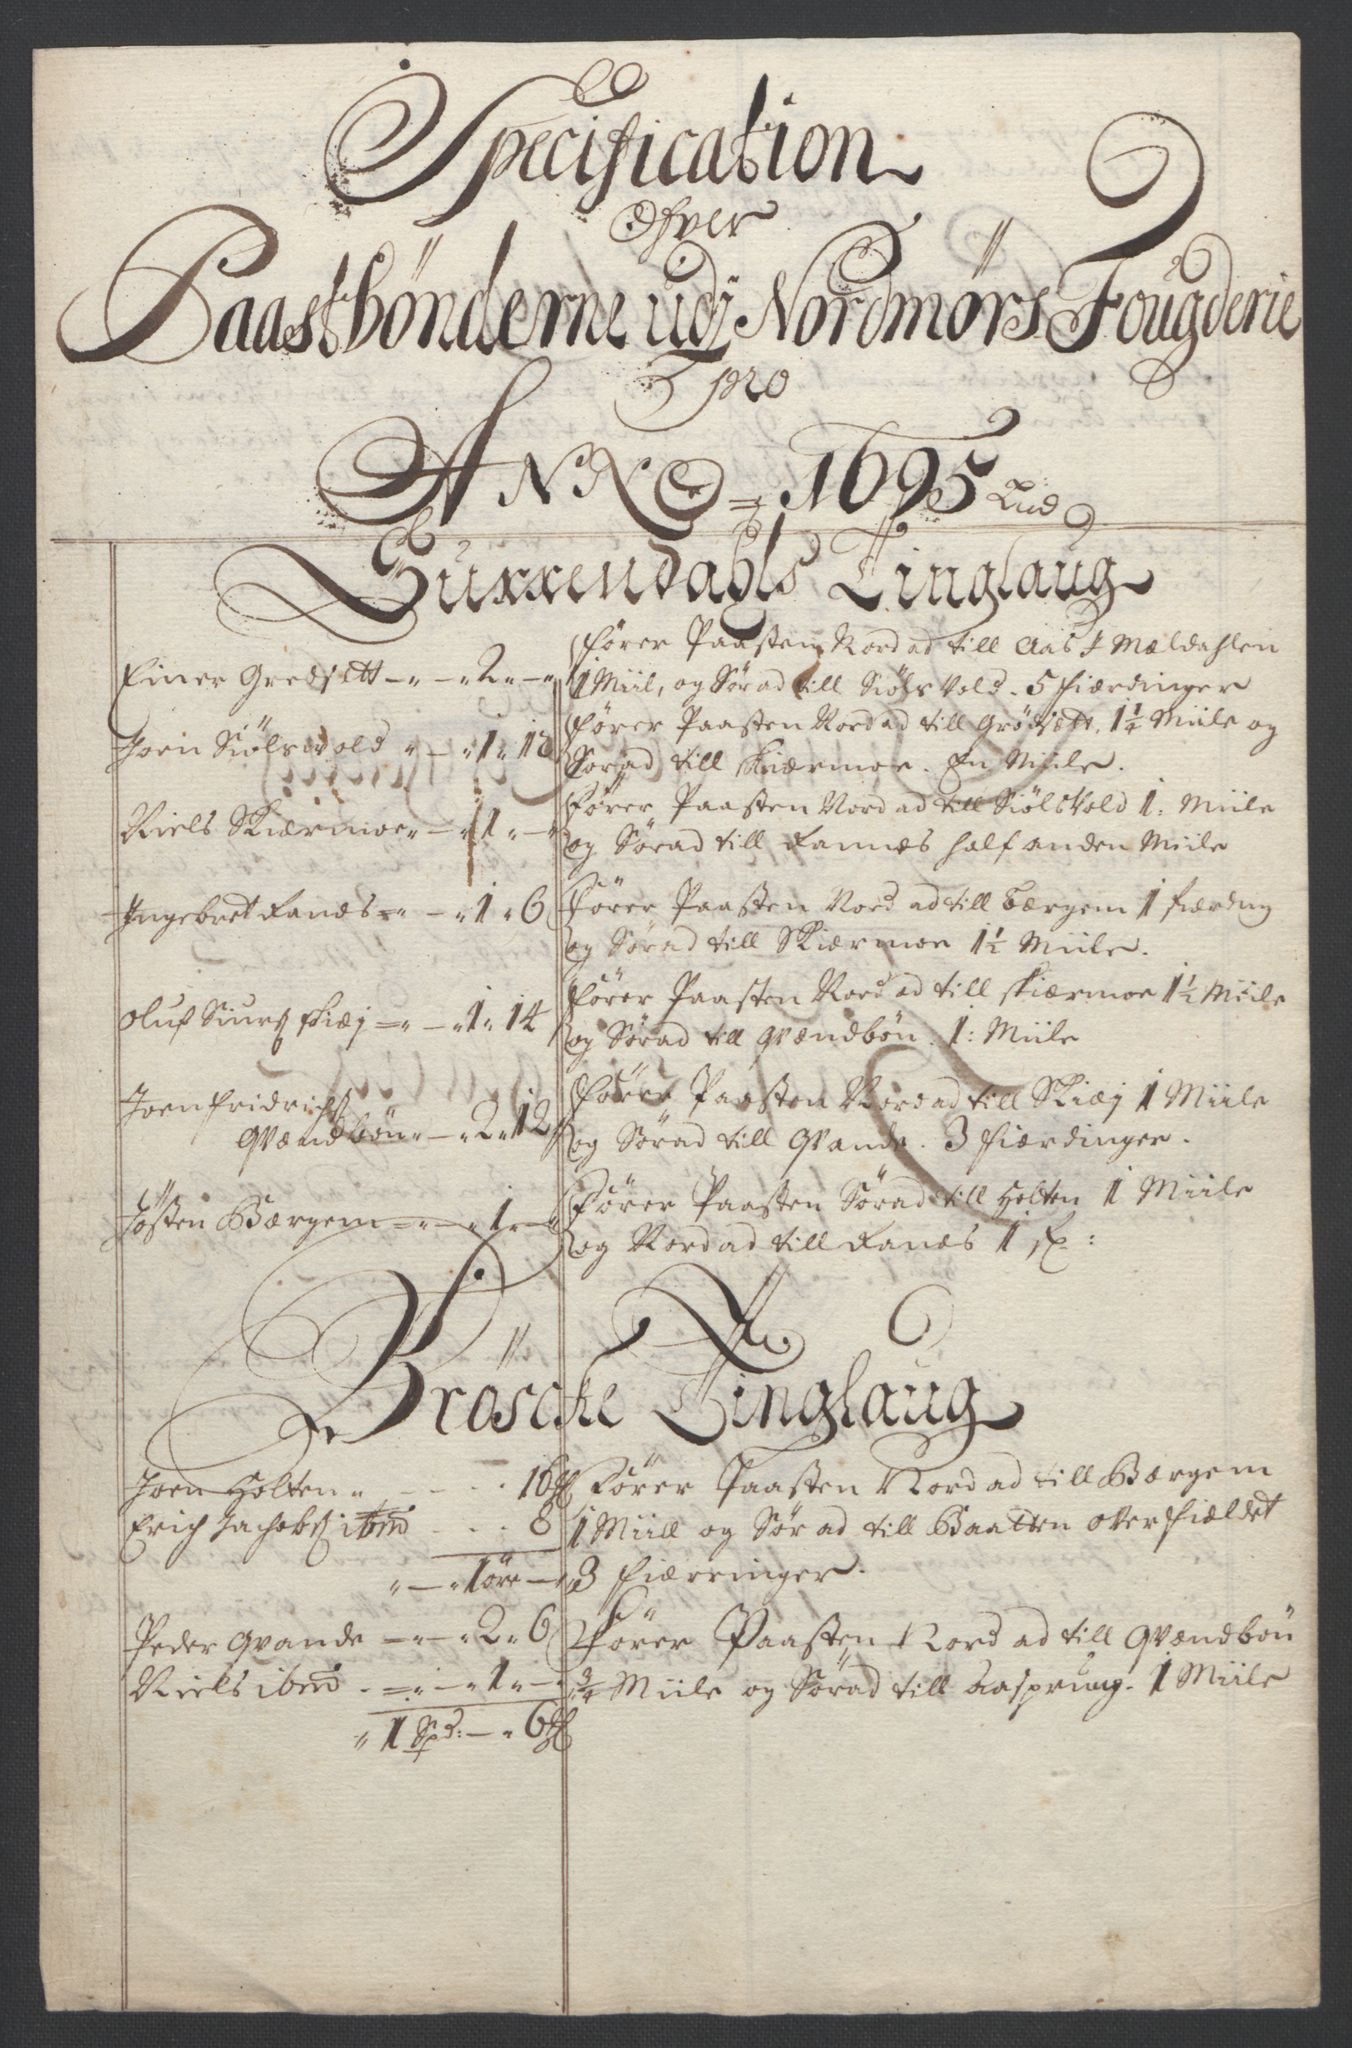 Specification
Ofver
Paastbønderne udj Nordmørs Fougderie
pro
ANNO 1695
Surrendahls Tinglaug
Einer Gredsett - 2 -
fører Paasten Nord ad till Aas i Mældahlen
1 Miil, og Sør ad till Siølsvold. 5 fiærdinger
Joen Siølswold - 1 " 18
fører Paasten Nord ad till Grødsett, 1 1/4 Miile og
Sør ad till Skiærmoe. En Miile.
Niels Skiærmoe - 1 -
Fører Paasten Nord ad till Siølsvold 1: Miile
og Sør ad till Fannes half anden Miile
Ingebret Fanes - 1 " 6
Fører Paasten Nord ad till Bærgem 1 fiærding
og Sør ad till Skiærmoe 1 1/2 Miile.
Oluf Siurs Skiæj - 1 " 14
Fører Paasten Nord ad till Skiærmoe 1 1/2 Miile
og Sør ad till Qvændbøn. 1: Miile
Joen Fridrichs
Qvændbøn - 2 " 12
Fører Paasten Nord ad till Skiæj 1 Miile
og Sør ad till Qvande. 3 fiærdinger.
Jøsten Bærgem - 1 -
Fører Paasten Sør ad till Holten 1 Miile
og Nord ad till Fanes 1 f:
Brøscke Tinglaug
Joen Holten 16
Fører Paasten Nord ad till Bærgem
Erich Jachobs ibm 8
1 Miill og Sør ad till Baatten over fieldet
1 øre -
3 fiærringer.
Peder Qvande - 2 " 6
Fører Paasten Nord ad till Qvændbøn
Niels ibm - 1 -
3/4 Miile og Sør ad till Aasprung. 1 Miile
" 1 Spd: - " 6